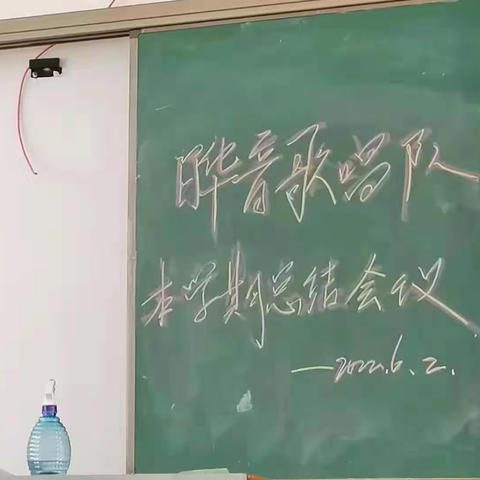 晔音歌唱队
本学期总结会议
—2022.6.2.